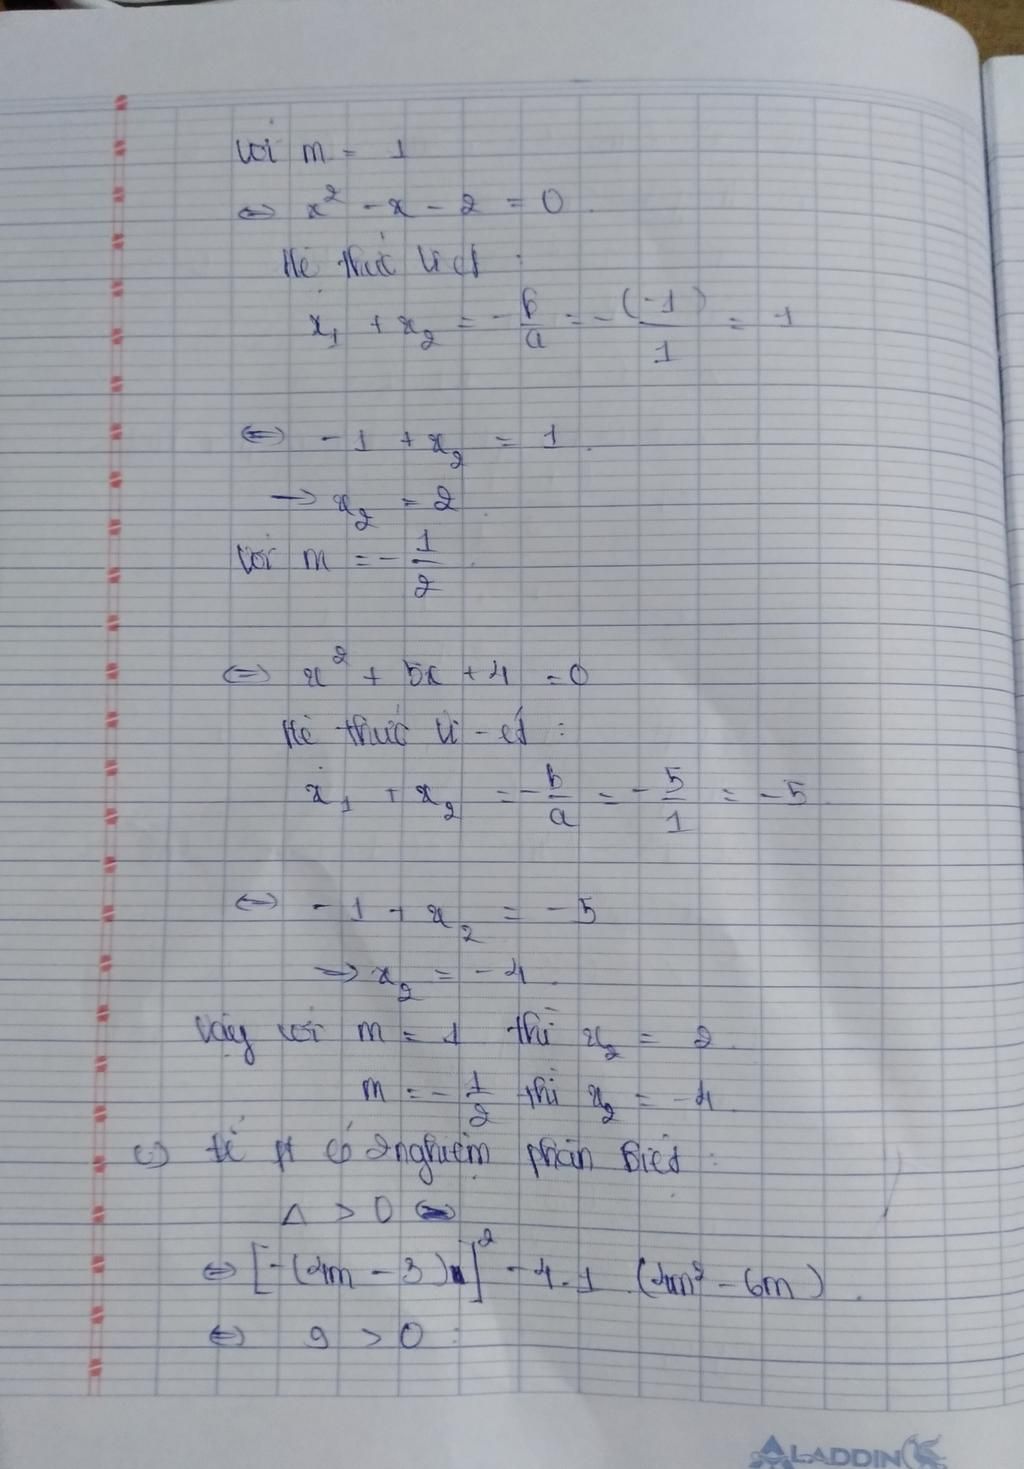 Với m = 1
⇔ x² - x - 2 = 0
Hệ thức Vi ét :
x₁ + x₂ = -b/a = -(-1)/1 = 1
⇔ -1 + x₂ = 1
→ x₂ = 2
Với m = -1/2
⇔ x² + 5x + 4 = 0
Hệ thức Vi-ét :
x₁ + x₂ = -b/a = -5/1 = -5
⇔ -1 + x₂ = -5
→ x₂ = -4
Vậy với m = 1 thì x₂ = 2
m = -1/2 thì x₂ = -4
c) Để pt có 2 nghiệm phân biệt :
Δ > 0 ⇔
⇔ [-(4m - 3)]² - 4.1 (4m² - 6m)
⇔ 9 > 0
ALADDIN